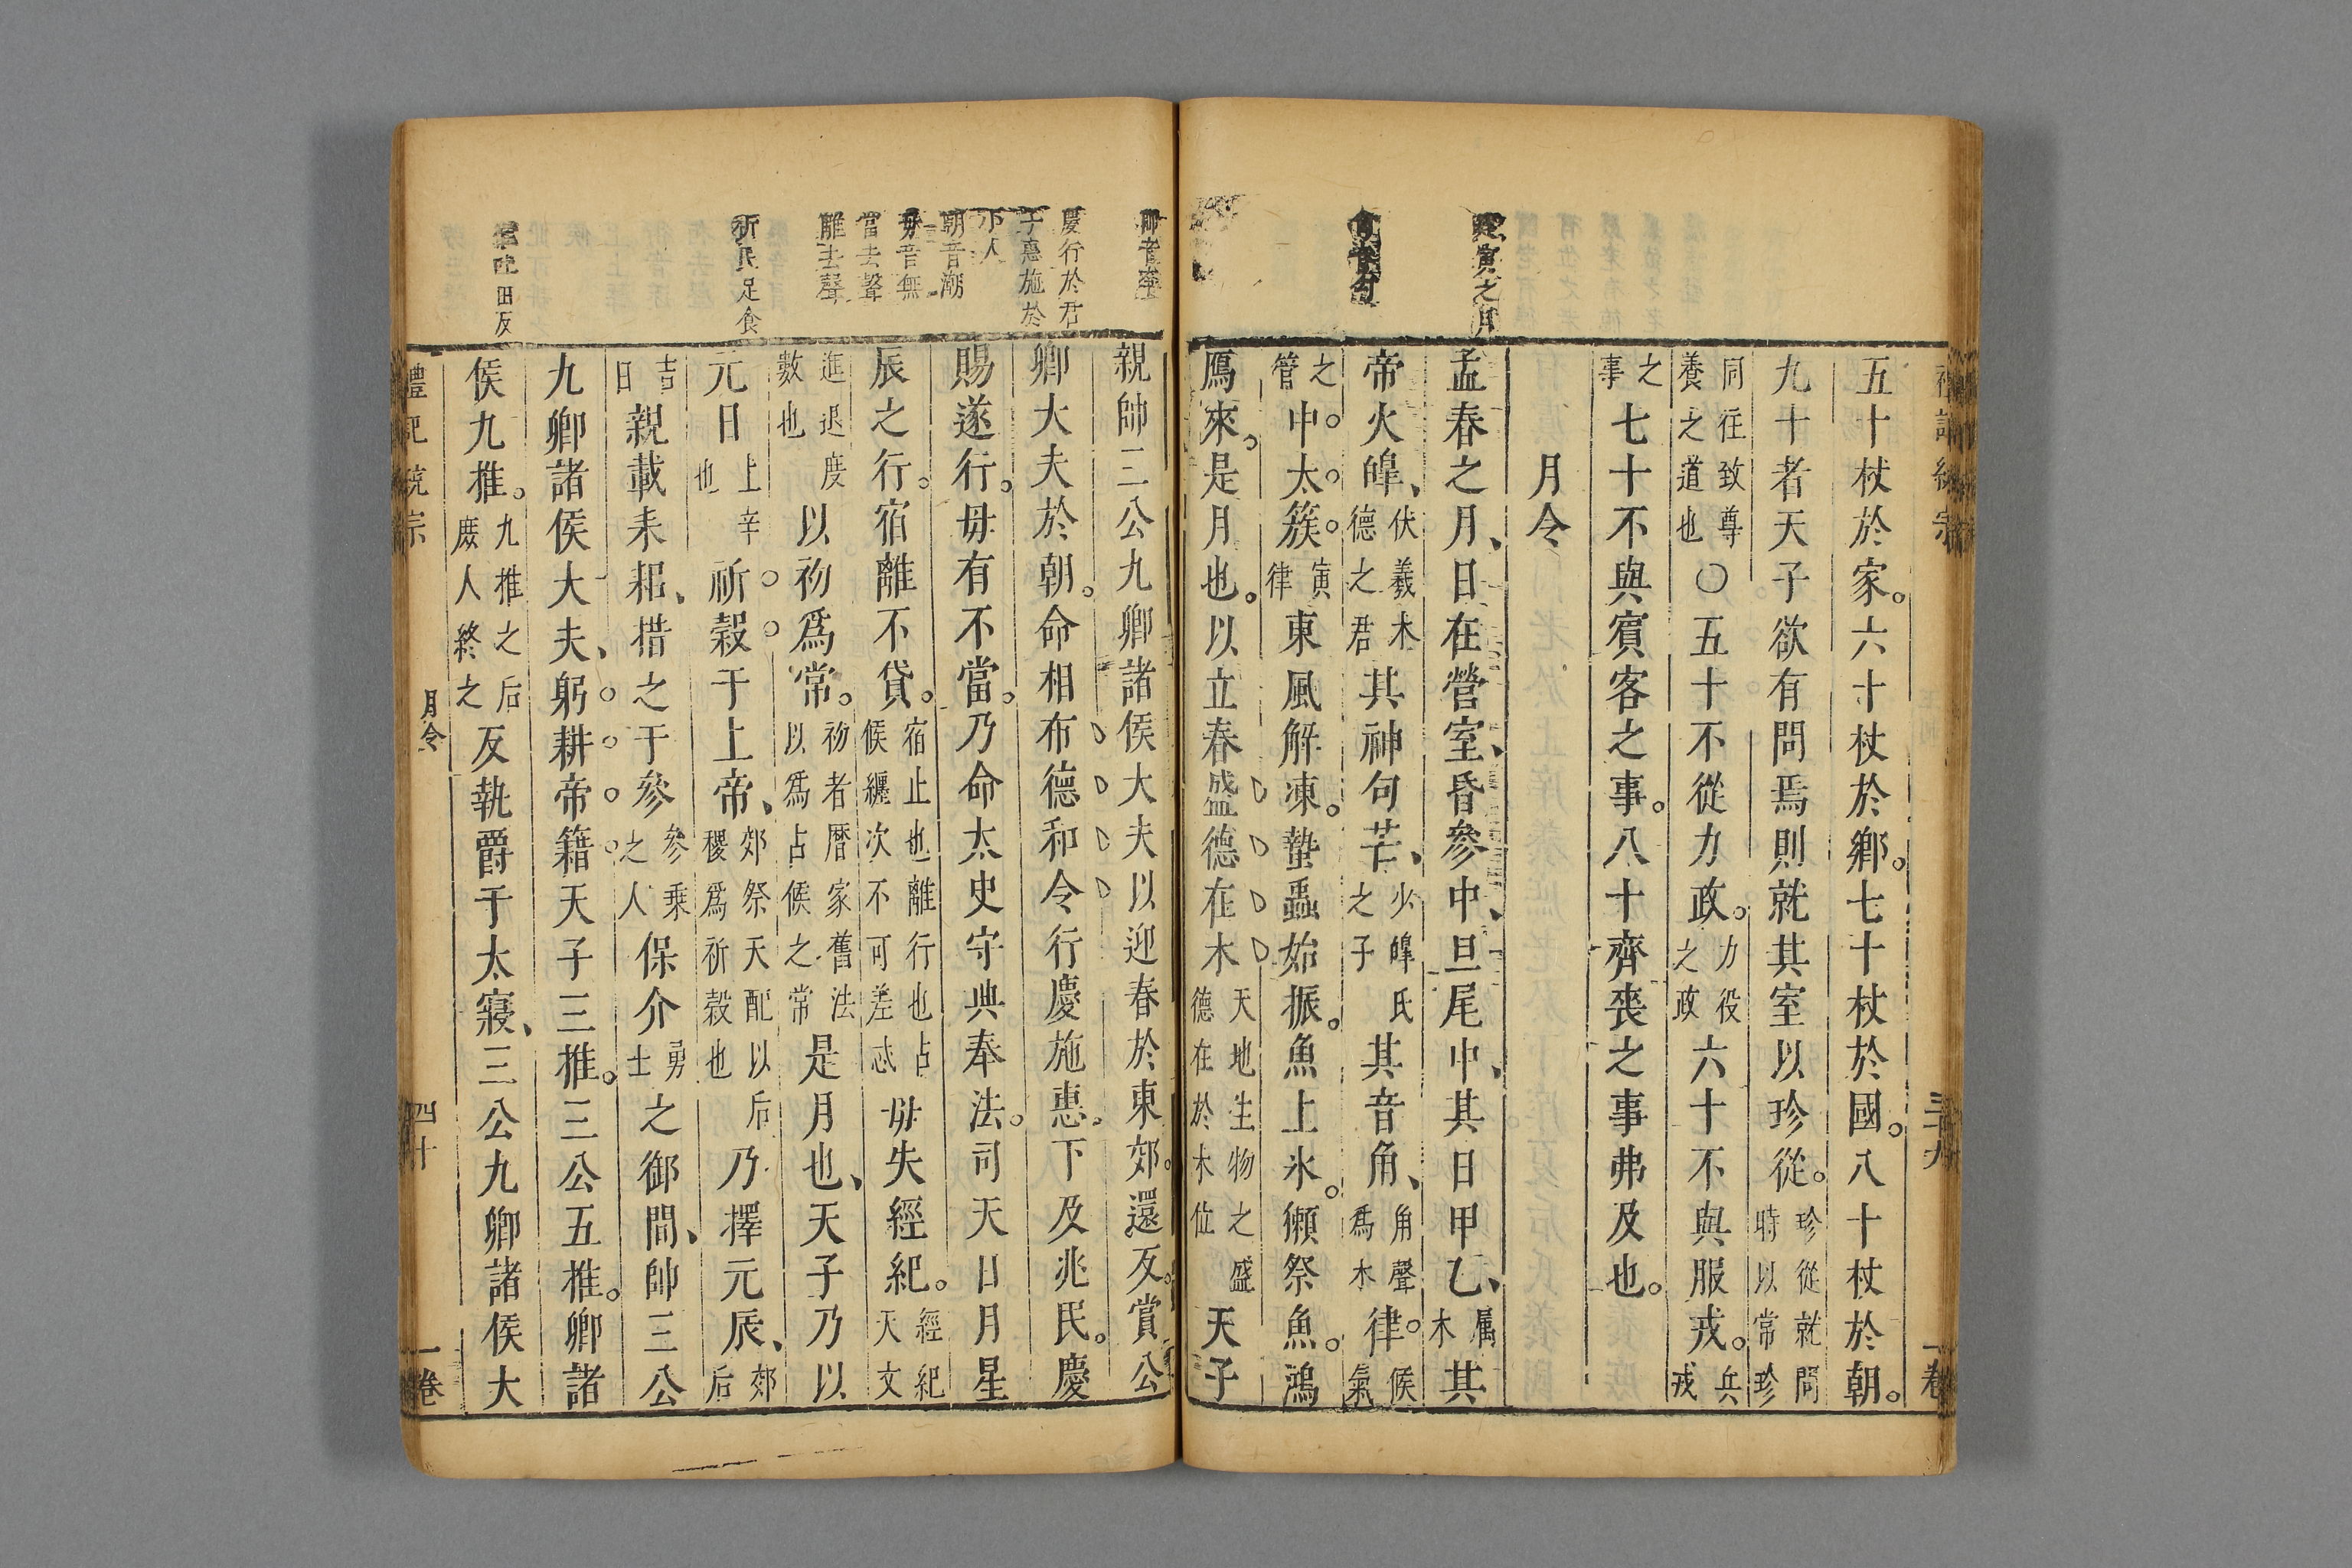 五十杖於家。六十杖於鄉。七十杖於國。八十杖於朝。
九十者天子欲有問焉則就其室以珍從。珍從就問時以常珍
同往致尊養之道也〇五十不從力政。力役之政六十不與服戎。兵戎
之事七十不與賓客之事。八十齊喪之事弗及也。
月令
孟春之月、日在營室、昏參中、旦尾中、其日甲乙、屬木其
帝火皥、伏羲木德之君其神句芒、少皥氏之子其音角、角聲爲木律。候氣
之管中。太。簇。寅律東風解凍。蟄蟲始振。魚上氷。獺祭魚。鴻
鴈來。是月也。以立春盛德在木天地生物之盛德在於木位天子
建寅之月
句音勾
三十九
一卷
親帥三公九卿諸侯大夫以迎春於東郊。還反。賞公
卿大夫於朝。命相布德和令行慶施惠。下及兆民。慶
賜遂行。毋有不當。乃命太史守典奉法。司天日月星
辰之行。宿離不貸。宿止也離行也占候纏次不可差忒毋失經紀。經紀天文
進退度數也以初爲常。初者曆家舊法以爲占候之常是月也、天子乃以
元日上辛也祈。穀。于上帝、郊祭天配以后稷爲祈穀也乃擇元辰、郊后
吉日親載耒耜、措之于參參乘之人保介勇士之御間、帥三公
九卿諸侯大夫、躬。耕。帝。籍。天子三推。三公五推。卿諸
侯九推。九推之后庶人終之反執爵于太寢、三公九卿諸侯大
慶行於君
子惠施於
小人
朝音潮
毋音無
當去聲
離去聲
祈民足食
禮記統宗
月令
四十
一卷